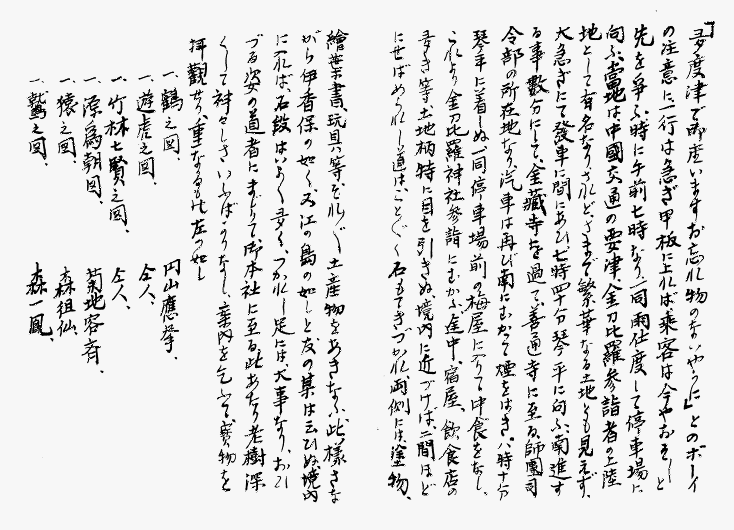 「多度津で御座いますお忘れ物のないやうに」とのボーイ
の注意に一行は急ぎ甲板に上れば乗客は今やおそしと
先を爭ふ、時に午前七時なり、一同雨仕度して停車場に
向ふ、當地は中國交通の要津、金刀比羅參詣者の上陸
地として有名なりされど、さまで繁華なる土地とも見えず、
大急ぎにて發車に間にあひ七時四十分琴平に向ふ、南進す
る事數分にして、金藏寺を過て、善通寺に至る、師團司
令部の所在地なり、汽車は再び南にむかつて煙をはき、八時十分
琴平に着しぬ、一同停車場前の梅屋に入りて中食をなし、
これより金刀比羅神社參詣にむかふ、途中、宿屋、飲食店の
多き等土地柄特に目を引きぬ、境内に近づけば、二間ほど
にせばめられし道は、ことごとく石もてきづかれ、両側には塗物、
繪葉書、玩具、等をひさぐ土産物をあきなふ、此樣さな
がら伊香保の如く、又江の島の如しと友の某は云ひぬ、境内
に入れば、石段はいよいよ多く、つかれし足には、大事なり、おひ
づる姿の道者にまじりて御本社に至る、此あたり老樹深
くして神々しさいふばかりなし、案内を乞ふて寶物を
拝觀せり、重なるもの左の如し
一、鶴之図、 円山應擧、
一、遊虎之図、 仝人、
一、竹林七賢之図、 仝人、
一、源爲朝図、 菊地容斉、
一、猿之図、 森祖仙、
一、鷲之図、 森一鳳、